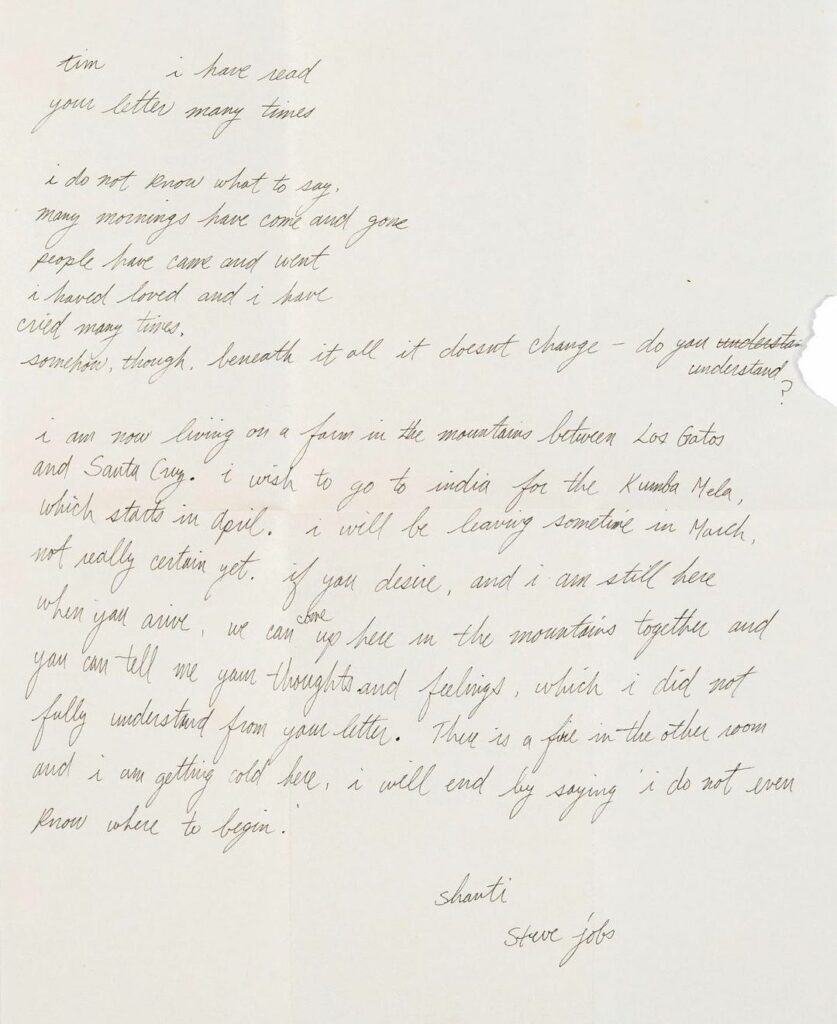 tim i have read
your letter many times
i do not know what to say.
many mornings have come and gone
people have came and went
i haved loved and i have
cried many times.
somehow, though, beneath it all it doesnt change – do you understa
understand
?
i am now living on a farm in the mountains between Los Gatos
and Santa Cruz. i wish to go to india for the Kumba Mela,
which starts in April. i will be leaving sometime in March,
not really certain yet. if you desire, and i am still here
when you arive, we can come up here in the mountains together and
you can tell me your thoughts and feelings, which i did not
fully understand from your letter. There is a fire in the other room
and i am getting cold here. i will end by saying 'i do not even
know where to begin.'
shanti
steve jobs